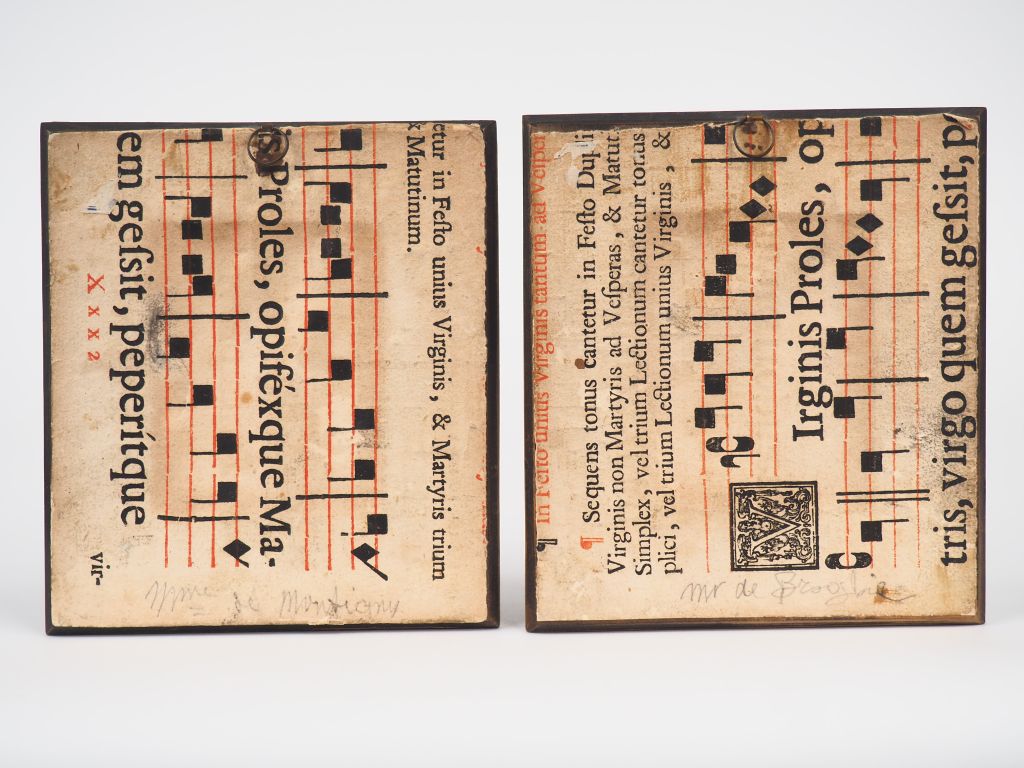 ctur in Feſto unius Virginis, & Martyris trium
& Matutinum.
is Proles, opiféxque Ma-
em geſsit, peperítque
X x x x 2
vir-
Mme de
In Feſto unius Virginis tantum ad Veſper
¶ Sequens tonus cantetur in Feſto Dupli
Virginis non Martyris ad Veſperas, & Matut.
Simplex, vel trium Lectionum cantetur tonus
plici, vel trium Lectionum unius Virginis, &
VIrginis Proles, op
tris, virgo quem geſsit, p
mr de Broglie